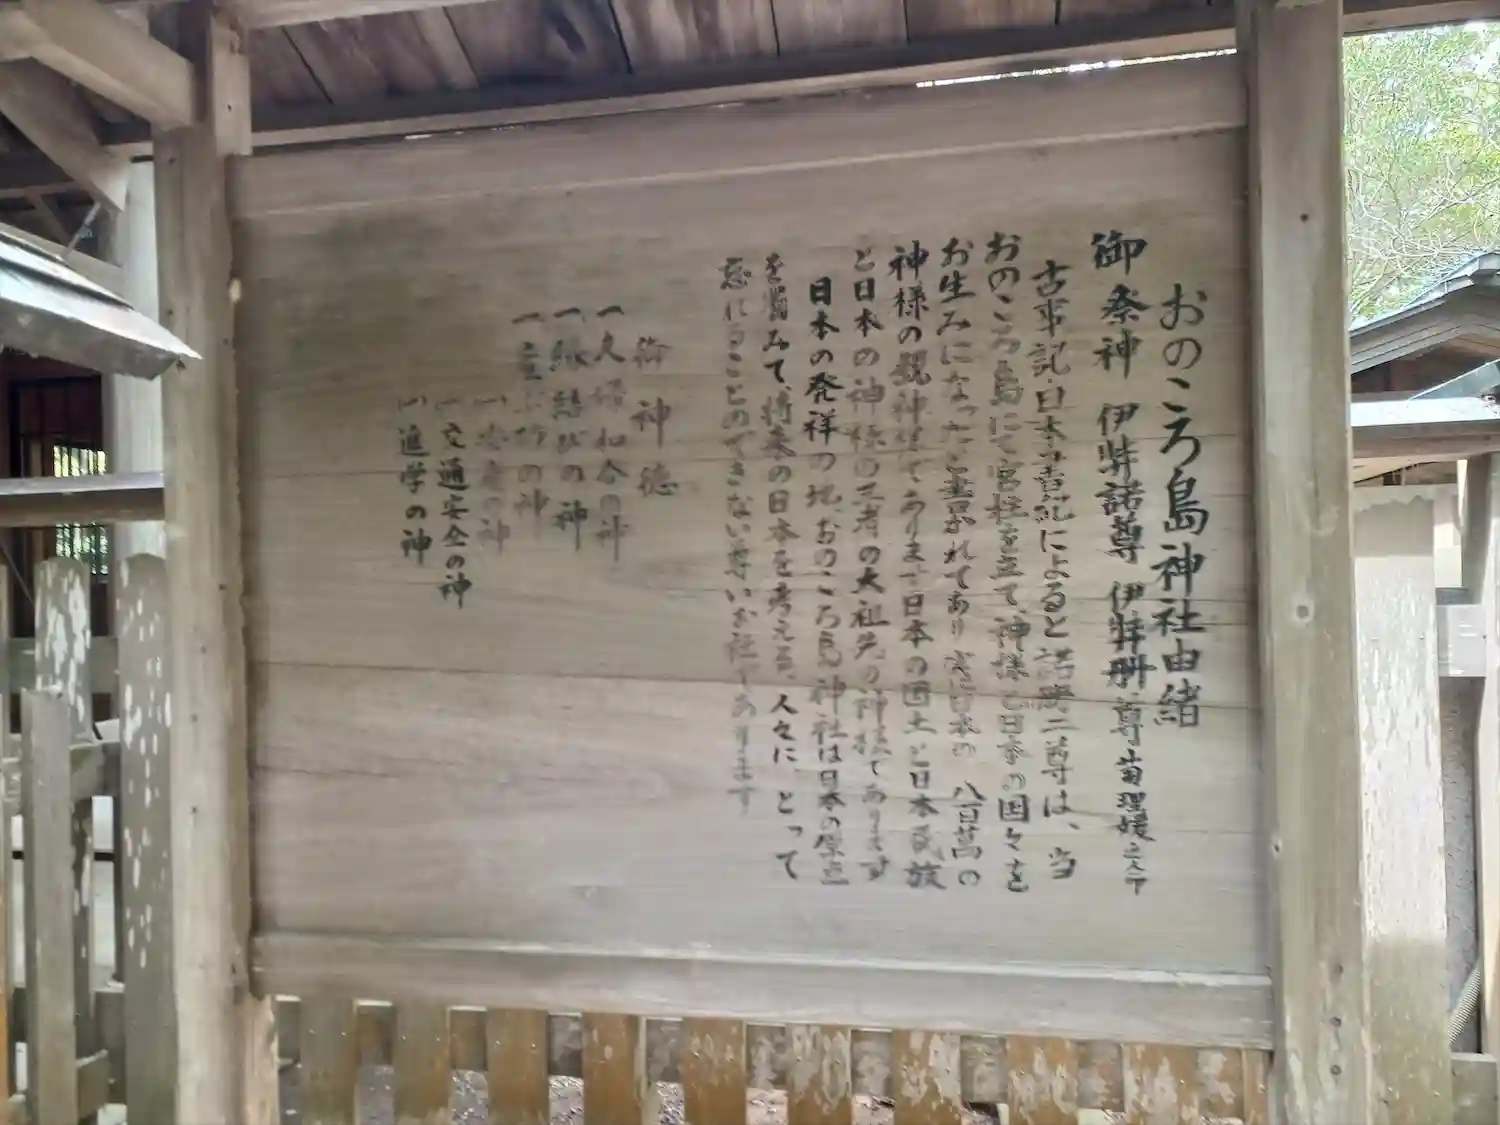 おのころ島神社由緒
御祭神 伊弉諾尊 伊弉冊尊 菊理媛之命
古事記・日本書紀によると諾冊二尊は、当
おのころ島にて宮柱を立て、神様と日本の国々を
お生みになったと書かれてあり 実に日本の 八百萬の
神様の親神様であります 日本の国土と日本民族
と日本の神様の三者の大祖先の神様であります
日本の発祥の地、おのころ島神社は日本の原点
を顧みて、将来の日本を考える、人々に、とって
忘れることのできない尊いお社であります
御神徳
一 夫婦和合の神
一 縁結びの神
一 の神
一 安産の神
一 交通安全の神
一 進学の神